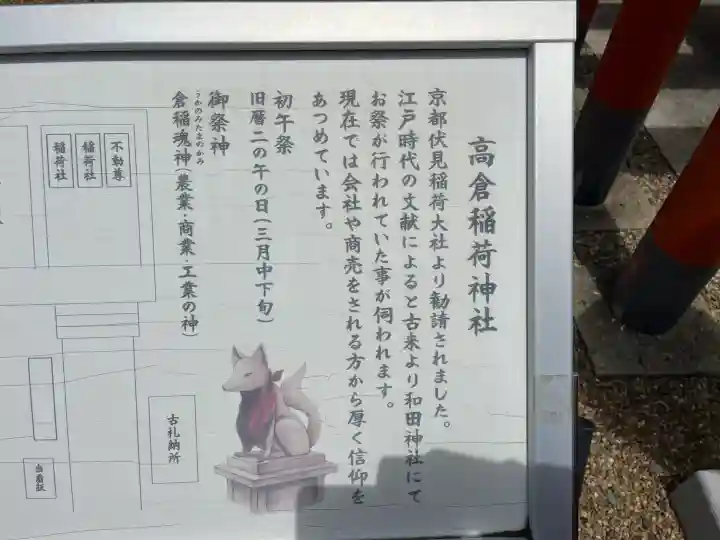 高倉稲荷神社
京都伏見稲荷大社より勧請されました。
江戸時代の文献によると古来より和田神社にて
お祭が行われていた事が伺われます。
現在では会社や商売をされる方から厚く信仰を
あつめています。
初午祭
旧暦二の午の日(三月中下旬)
御祭神
うかのみたまのかみ
倉稲魂神(農業・商業・工業の神)
不動尊
稲荷社
稲荷社
古札納所